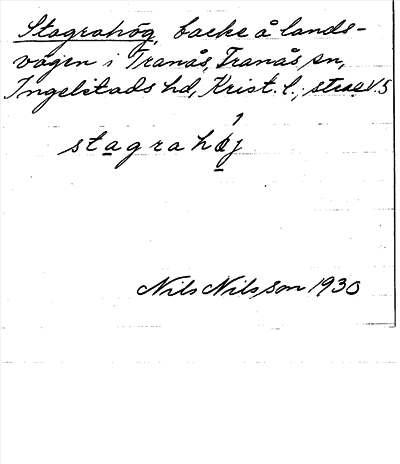 Stagrahög, backe å lands-
vägen i Tranås, Tranås sn,
Ingelstads hd, Krist. l., strax V.S
stagrahøj
Nils Nilsson 1930